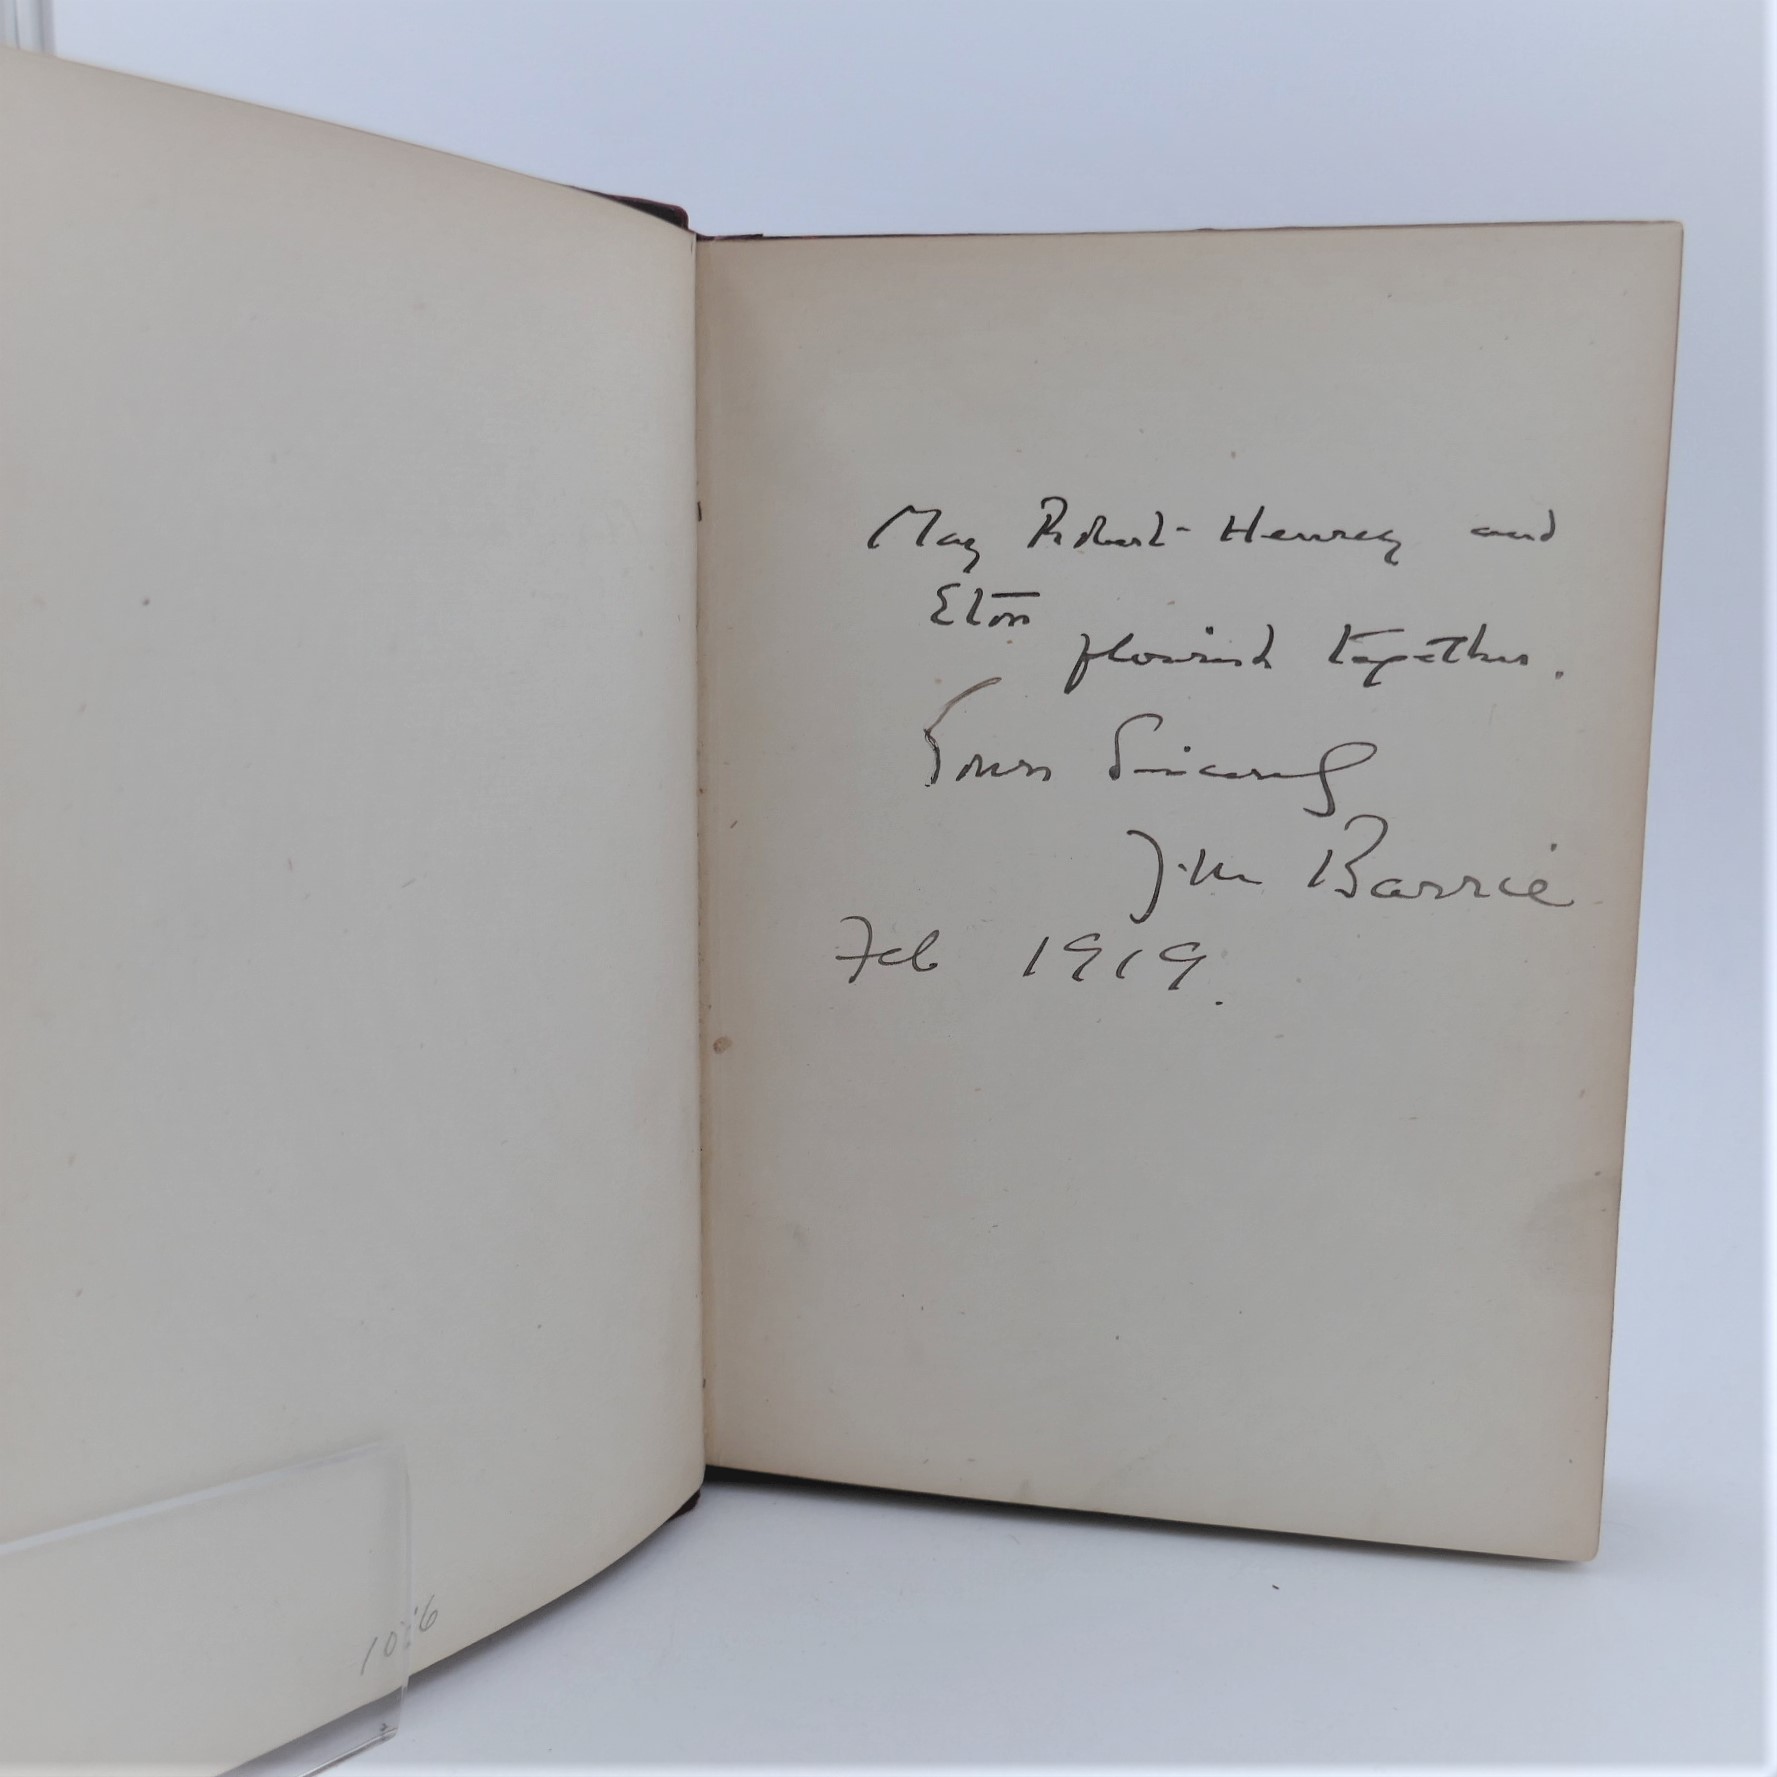 May Robert-Henrey and
Eton
flourish together.
Yours Sincerely
J.M Barrie
Feb 1919.